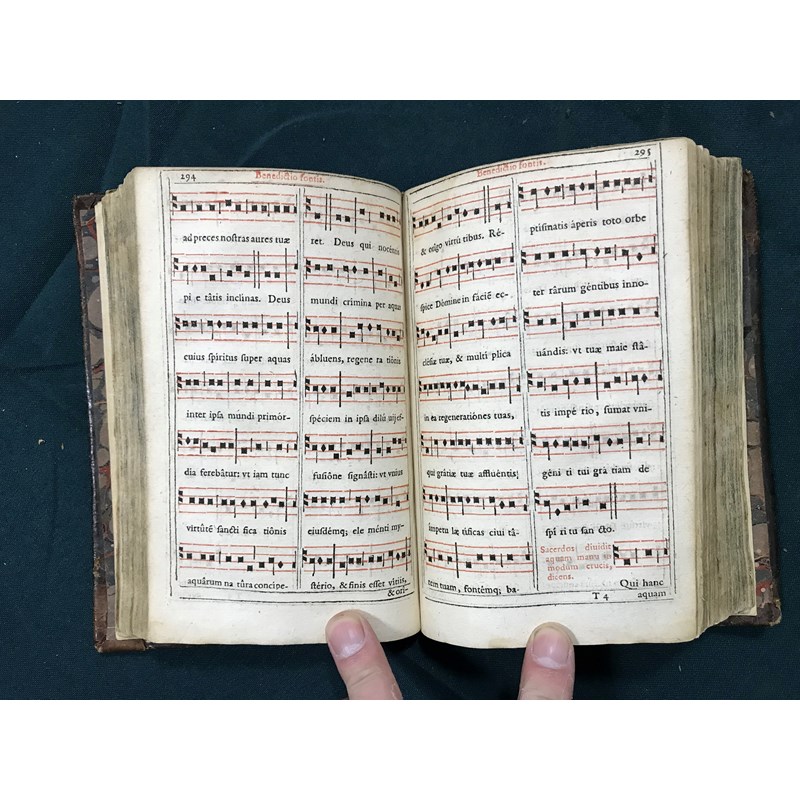 294
Benedictio fontis.
ad preces nostras aures tuæ
pi e tâtis inclinas. Deus
cuius spiritus super aquas
inter ipsa mundi primór-
dia ferebâtur: vt iam tunc
virtûtẽ sancti fica tiônis
aquârum na tûra concipe-
ret. Deus qui nocêntis
mundi crimina per aquas
ábluens, regene ra tiônis
spéciem in ipsa dilú uij ef-
fusiône signâsti: vt vnius
eiusdémq; ele ménti my-
stério, & finis esset vitiis,
& ori-
Benedictio fontis.
295
& orîgo virtù tibus. Ré-
spice Dómine in faciẽ ec-
clésiæ tuæ, & multi plica
in ea regeneratiônes tuas,
qui grátiæ tuæ affluéntis;
impetu læ tíficas ciui tâ-
tem tuam, fontémq; ba-
ptismatis áperis toto orbe
ter rârum géntibus inno-
uándis: vt tuæ maie stâ-
tis impé rio, sumat vni-
gêni ti tui grá tiam de
spi ri tu san cto.
Sacerdos diuidit
aquam manu in
modum crucis,
dicens.
Qui hanc
T 4
aquam